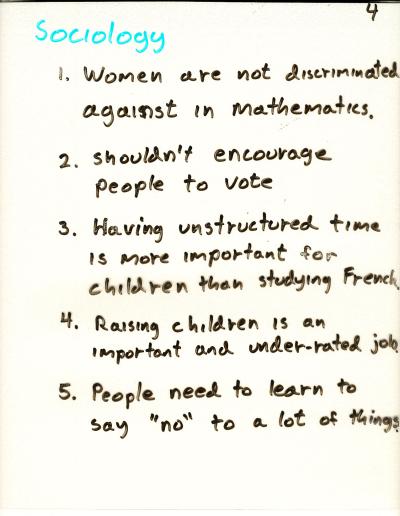 4
Sociology
1. Women are not discriminated
against in mathematics.
2. shouldn't encourage
people to vote
3. Having unstructured time
is more important for
children than studying French.
4. Raising children is an
important and under-rated job.
5. People need to learn to
say "no" to a lot of things.